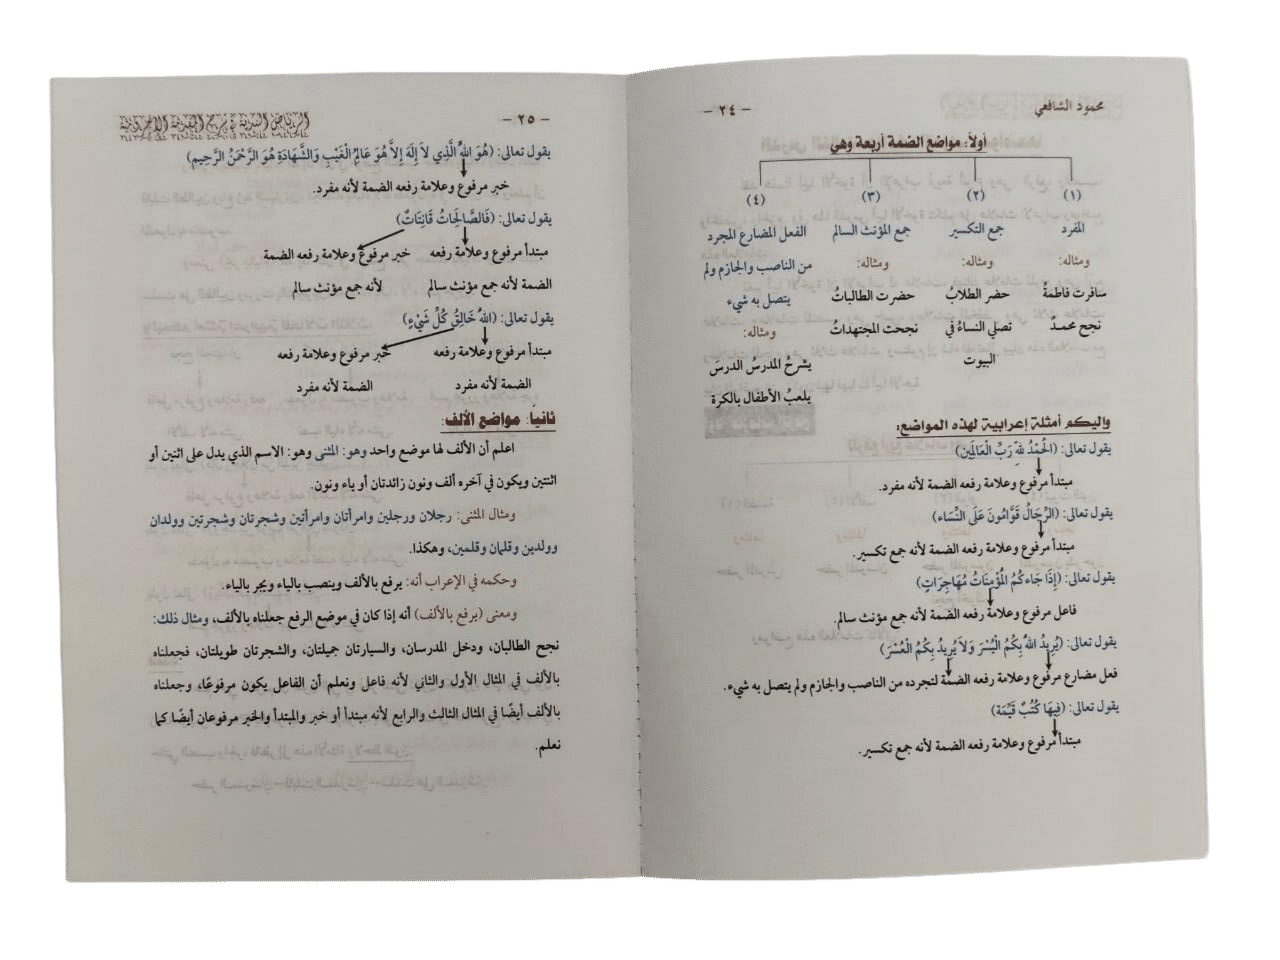 محمود الشافعي
- ٢٤ -
أولاً: مواضع الضمة أربعة وهي
(١) (٢) (٣) (٤)
المفرد جمع التكسير جمع المؤنث السالم الفعل المضارع المجرد
ومثاله: ومثاله: ومثاله: من الناصب والجازم ولم
سافرت فاطمةُ حضر الطلابُ حضرت الطالباتُ يتصل به شيء
نجح محمدٌ تصلي النساءُ في نجحت المجتهداتُ ومثاله:
البيوت يشرحُ المدرسُ الدرسَ
يلعبُ الأطفال بالكرة
وإليكم أمثلة إعرابية لهذه المواضع:
يقول تعالى: (الْحَمْدُ للهِ رَبِّ الْعَالَمِين)
مبتدأ مرفوع وعلامة رفعه الضمة لأنه مفرد.
يقول تعالى: (الرِّجَالُ قَوَّامُونَ عَلَى النِّسَاء)
مبتدأ مرفوع وعلامة رفعه الضمة لأنه جمع تكسير.
يقول تعالى: (إِذَا جَاءكُمُ الْمُؤْمِنَاتُ مُهَاجِرَاتٍ)
فاعل مرفوع وعلامة رفعه الضمة لأنه جمع مؤنث سالم.
يقول تعالى: (يُرِيدُ اللهُ بِكُمُ الْيُسْرَ وَلاَ يُرِيدُ بِكُمُ الْعُسْرَ)
فعل مضارع مرفوع وعلامة رفعه الضمة لتجرده من الناصب والجازم ولم يتصل به شيء.
يقول تعالى: (فِيهَا كُتُبٌ قَيِّمَة)
مبتدأ مرفوع وعلامة رفعه الضمة لأنه جمع تكسير.
- ٢٥ -
الرياض الندية في شرح المقدمة الآجرومية
يقول تعالى: (هُوَ اللهُ الَّذِي لاَ إِلَهَ إِلاَّ هُوَ عَالِمُ الْغَيْبِ وَالشَّهَادَةِ هُوَ الرَّحْمَنُ الرَّحِيم)
خبر مرفوع وعلامة رفعه الضمة لأنه مفرد.
يقول تعالى: (فَالصَّالِحَاتُ قَانِتَاتٌ)
مبتدأ مرفوع وعلامة رفعه خبر مرفوع وعلامة رفعه الضمة
الضمة لأنه جمع مؤنث سالم لأنه جمع مؤنث سالم
يقول تعالى: (اللهُ خَالِقُ كُلِّ شَيْءٍ)
مبتدأ مرفوع وعلامة رفعه خبر مرفوع وعلامة رفعه
الضمة لأنه مفرد الضمة لأنه مفرد
ثانياً: مواضع الألف:
اعلم أن الألف لها موضع واحد وهو: المثنى وهو: الاسم الذي يدل على اثنين أو
اثنتين ويكون في آخره ألف ونون زائدتان أو ياء ونون.
ومثال المثنى: رجلان ورجلين وامرأتان وامرأتين وشجرتان وشجرتين وولدان
وولدين وقلمان وقلمين، وهكذا.
وحكمه في الإعراب أنه: يرفع بالألف وينصب بالياء ويجر بالياء.
ومعنى (يرفع بالألف) أنه إذا كان في موضع الرفع جعلناه بالألف، ومثال ذلك:
نجح الطالبان، ودخل المدرسان، والسيارتان جميلتان، والشجرتان طويلتان، فجعلناه
بالألف في المثال الأول والثاني لأنه فاعل ونعلم أن الفاعل يكون مرفوعًا، وجعلناه
بالألف أيضًا في المثال الثالث والرابع لأنه مبتدأ أو خبر والمبتدأ والخبر مرفوعان أيضًا كما
نعلم.